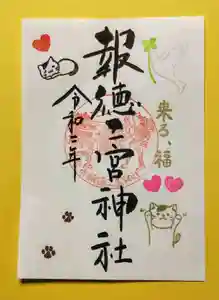 来る、福
報徳二宮神社
令和二年